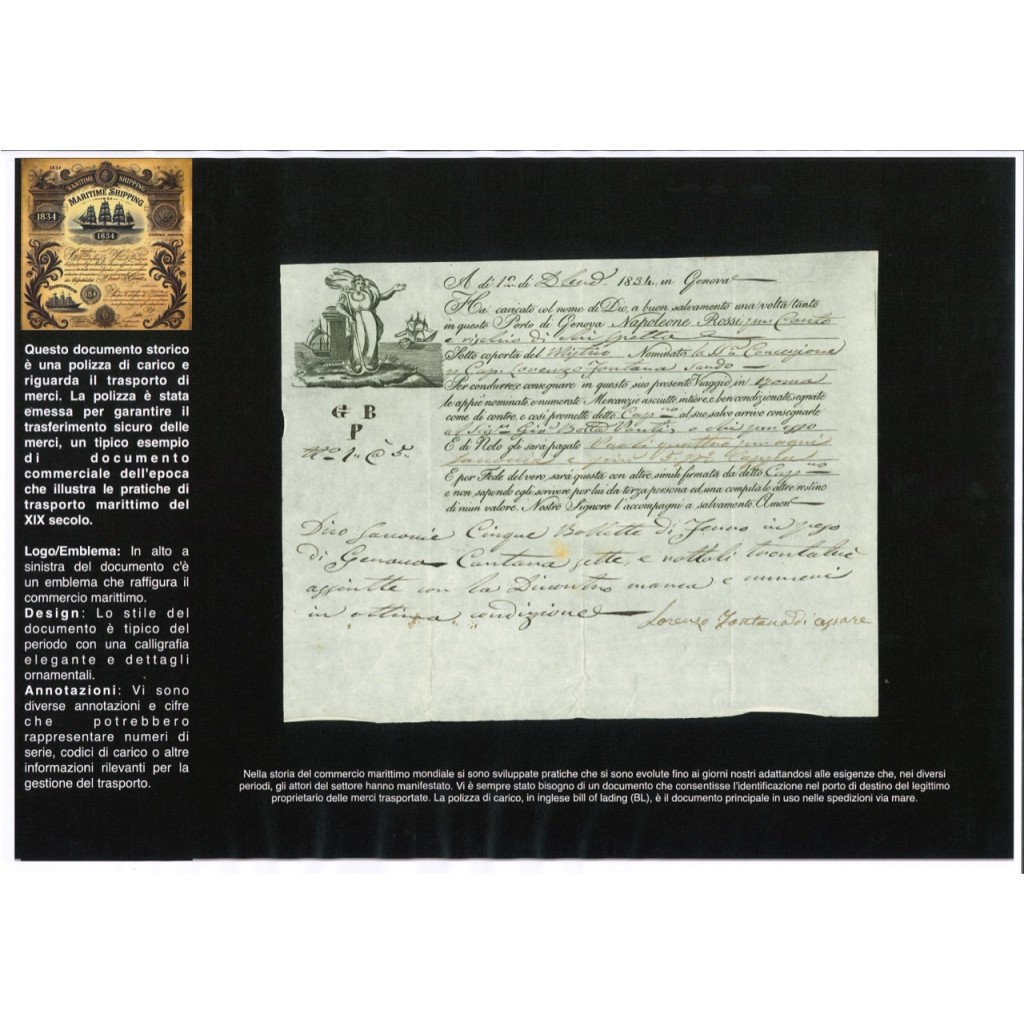 MARITIME SHIPPING
MARITIME SHIPPING
1834
1834
Questo documento storico
è una polizza di carico e
riguarda il trasporto di
merci. La polizza è stata
emessa per garantire il
trasferimento sicuro delle
merci, un tipico esempio
di documento
commerciale dell'epoca
che illustra le pratiche di
trasporto marittimo del
XIX secolo.
Logo/Emblema: In alto a
sinistra del documento c'è
un emblema che raffigura il
commercio marittimo.
Design: Lo stile del
documento è tipico del
periodo con una calligrafia
elegante e dettagli
ornamentali.
Annotazioni: Vi sono
diverse annotazioni e cifre
che potrebbero
rappresentare numeri di
serie, codici di carico o altre
informazioni rilevanti per la
gestione del trasporto.
A di 1º di 1834, in Genova
Ha caricato col nome di Dio, a buon salvamento una volta tanto
in questo Porto di Genova Napoleone Rossi per Conto
e rischio di chi spetta
Sotto coperta del Nominata la Concezione
Cap. Lorenzo Fontana
Per condurre, e consegnare in questo suo presente Viaggio, in
le appiè nominate, e numerate Mercanzie asciutte, intiere, e ben condizionate, segnate
come di contro, e così promette detto Cap.no al suo salvo arrivo consegnarle
al Sig.r Gio Batta
E di Nolo gli sarà pagato quattro
E per Fede del vero, sarà questa con altre simili firmata da detto Cap.no
e non sapendo egli scrivere per lui da terza persona ed una compita le altre restino
di niun valore. Nostro Signore l'accompagni a salvamento. Amen
G B
P
Dico Cinque di in peso
di Genova Cantara sette, e rottoli
con la Di contro marca e numeri
in ottima condizione
Lorenzo Fontana di
Nella storia del commercio marittimo mondiale si sono sviluppate pratiche che si sono evolute fino ai giorni nostri adattandosi alle esigenze che, nei diversi
periodi, gli attori del settore hanno manifestato. Vi è sempre stato bisogno di un documento che consentisse l'identificazione nel porto di destino del legittimo
proprietario delle merci trasportate. La polizza di carico, in inglese bill of lading (BL), è il documento principale in uso nelle spedizioni via mare.